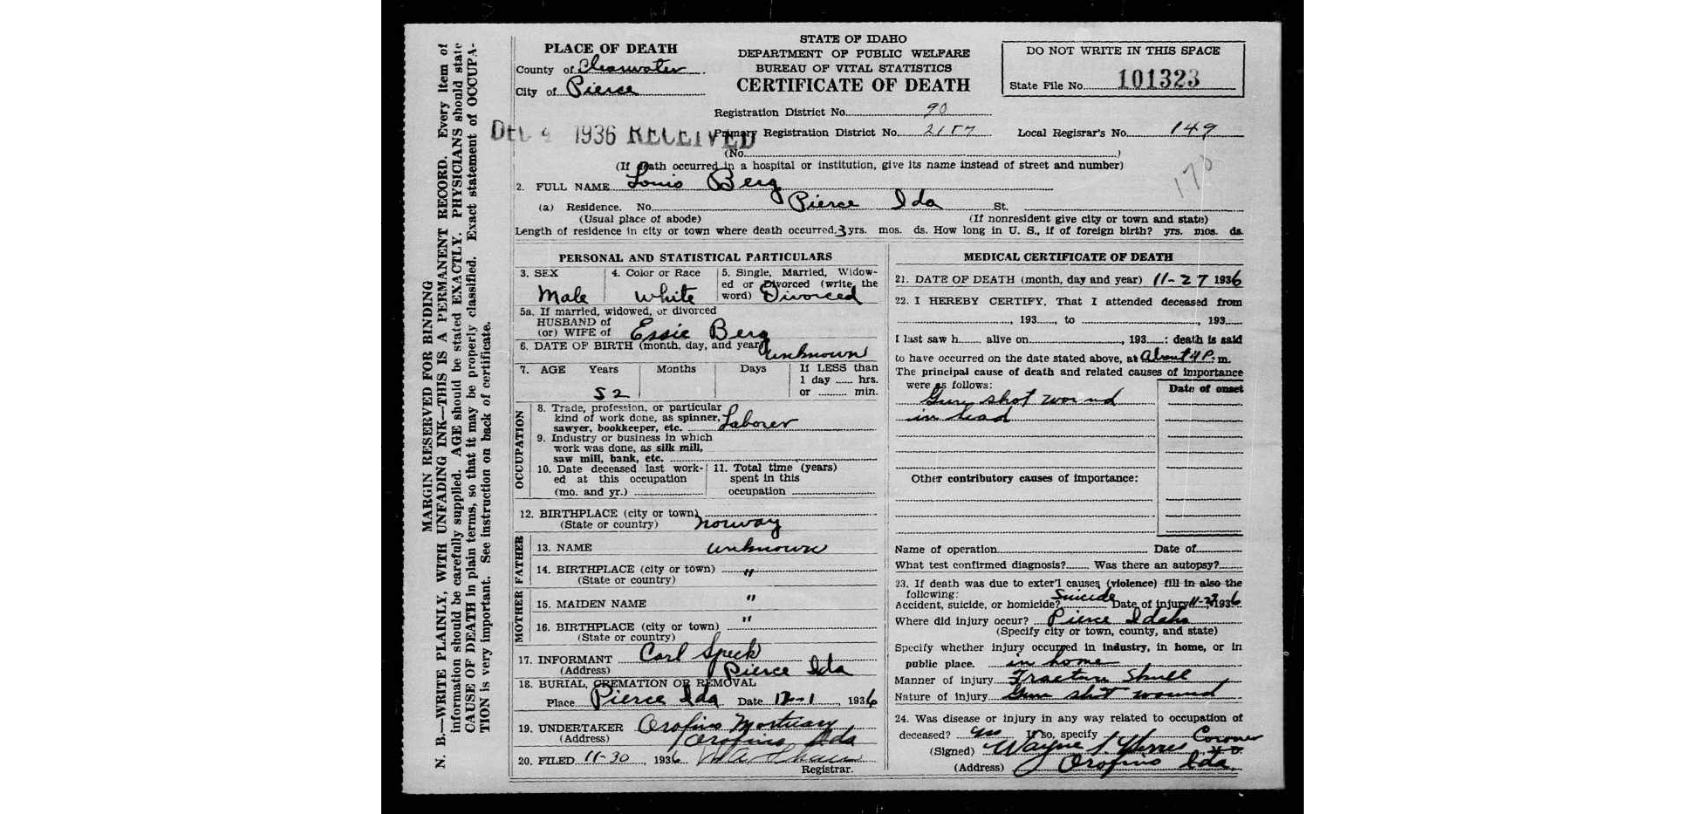 MARGIN RESERVED FOR BINDING
N. B.—WRITE PLAINLY, WITH UNFADING INK—THIS IS A PERMANENT RECORD. Every item of
information should be carefully supplied. AGE should be stated EXACTLY. PHYSICIANS should state
CAUSE OF DEATH in plain terms, so that it may be properly classified. Exact statement of OCCUPA-
TION is very important. See instruction on back of certificate.
PLACE OF DEATH
County of Clearwater
City of Pierce
STATE OF IDAHO
DEPARTMENT OF PUBLIC WELFARE
BUREAU OF VITAL STATISTICS
CERTIFICATE OF DEATH
DO NOT WRITE IN THIS SPACE
State File No. 101323
Registration District No. 90
DEC 4 1936 RECEIVED
Primary Registration District No. 2157
Local Regisrar's No. 149
(No.
(If death occurred in a hospital or institution, give its name instead of street and number)
170
2. FULL NAME Louis Berg
(a) Residence. No. Pierce Ida St.
(Usual place of abode) (If nonresident give city or town and state)
Length of residence in city or town where death occurred 3 yrs. mos. ds. How long in U. S., if of foreign birth? yrs. mos. ds.
PERSONAL AND STATISTICAL PARTICULARS
3. SEX
Male
4. Color or Race
White
5. Single, Married, Widow-
ed or Divorced (write the
word) Divorced
5a. If married, widowed, or divorced
HUSBAND of
(or) WIFE of Essie Berg
6. DATE OF BIRTH (month, day, and year) unknown
7. AGE Years Months Days
52
If LESS than
1 day hrs.
or min.
OCCUPATION
8. Trade, profession, or particular
kind of work done, as spinner,
sawyer, bookkeeper, etc. Laborer
9. Industry or business in which
work was done, as silk mill,
saw mill, bank, etc.
10. Date deceased last work-
ed at this occupation
(mo. and yr.)
11. Total time (years)
spent in this
occupation
12. BIRTHPLACE (city or town)
(State or country) Norway
FATHER
13. NAME unknown
14. BIRTHPLACE (city or town) "
(State or country)
MOTHER
15. MAIDEN NAME "
16. BIRTHPLACE (city or town) "
(State or country)
17. INFORMANT Carl Speck
(Address) Pierce Ida
18. BURIAL, CREMATION OR REMOVAL
Place Pierce Ida Date 12-1 1936
19. UNDERTAKER Orofino Mortuary
(Address) Orofino Ida
20. FILED 11-30, 1936
Registrar.
MEDICAL CERTIFICATE OF DEATH
21. DATE OF DEATH (month, day and year) 11-27 1936
22. I HEREBY CERTIFY, That I attended deceased from
, 193 , to , 193
I last saw h alive on , 193 : death is said
to have occurred on the date stated above, at About 4 P. m.
The principal cause of death and related causes of importance
were as follows:
Date of onset
Gun shot wound
in head
Other contributory causes of importance:
Name of operation Date of
What test confirmed diagnosis? Was there an autopsy?
23. If death was due to exter'l causes (violence) fill in also the
following:
Accident, suicide, or homicide? Suicide Date of injury 11-27 1936
Where did injury occur? Pierce Idaho
(Specify city or town, county, and state)
Specify whether injury occurred in industry, in home, or in
public place. in home
Manner of injury Fracture Skull
Nature of injury Gun shot wound
24. Was disease or injury in any way related to occupation of
deceased? no If so, specify
(Signed) Wayne Coroner M. D.
(Address) Orofino Ida.